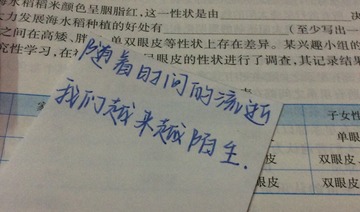 水稻稻米颜色呈胭脂红，这一性状是由
力发展海水稻种植的好处有
(至少写出一
之间在高矮、胖
单双眼皮等性状上存在差异。某兴趣小组的
究性学习，在
眼皮的性状进行了调查，其记录结果
随着时间的流逝
我们越来越陌生.
子女性
单眼
双眼皮
双眼皮
眼皮
双眼皮